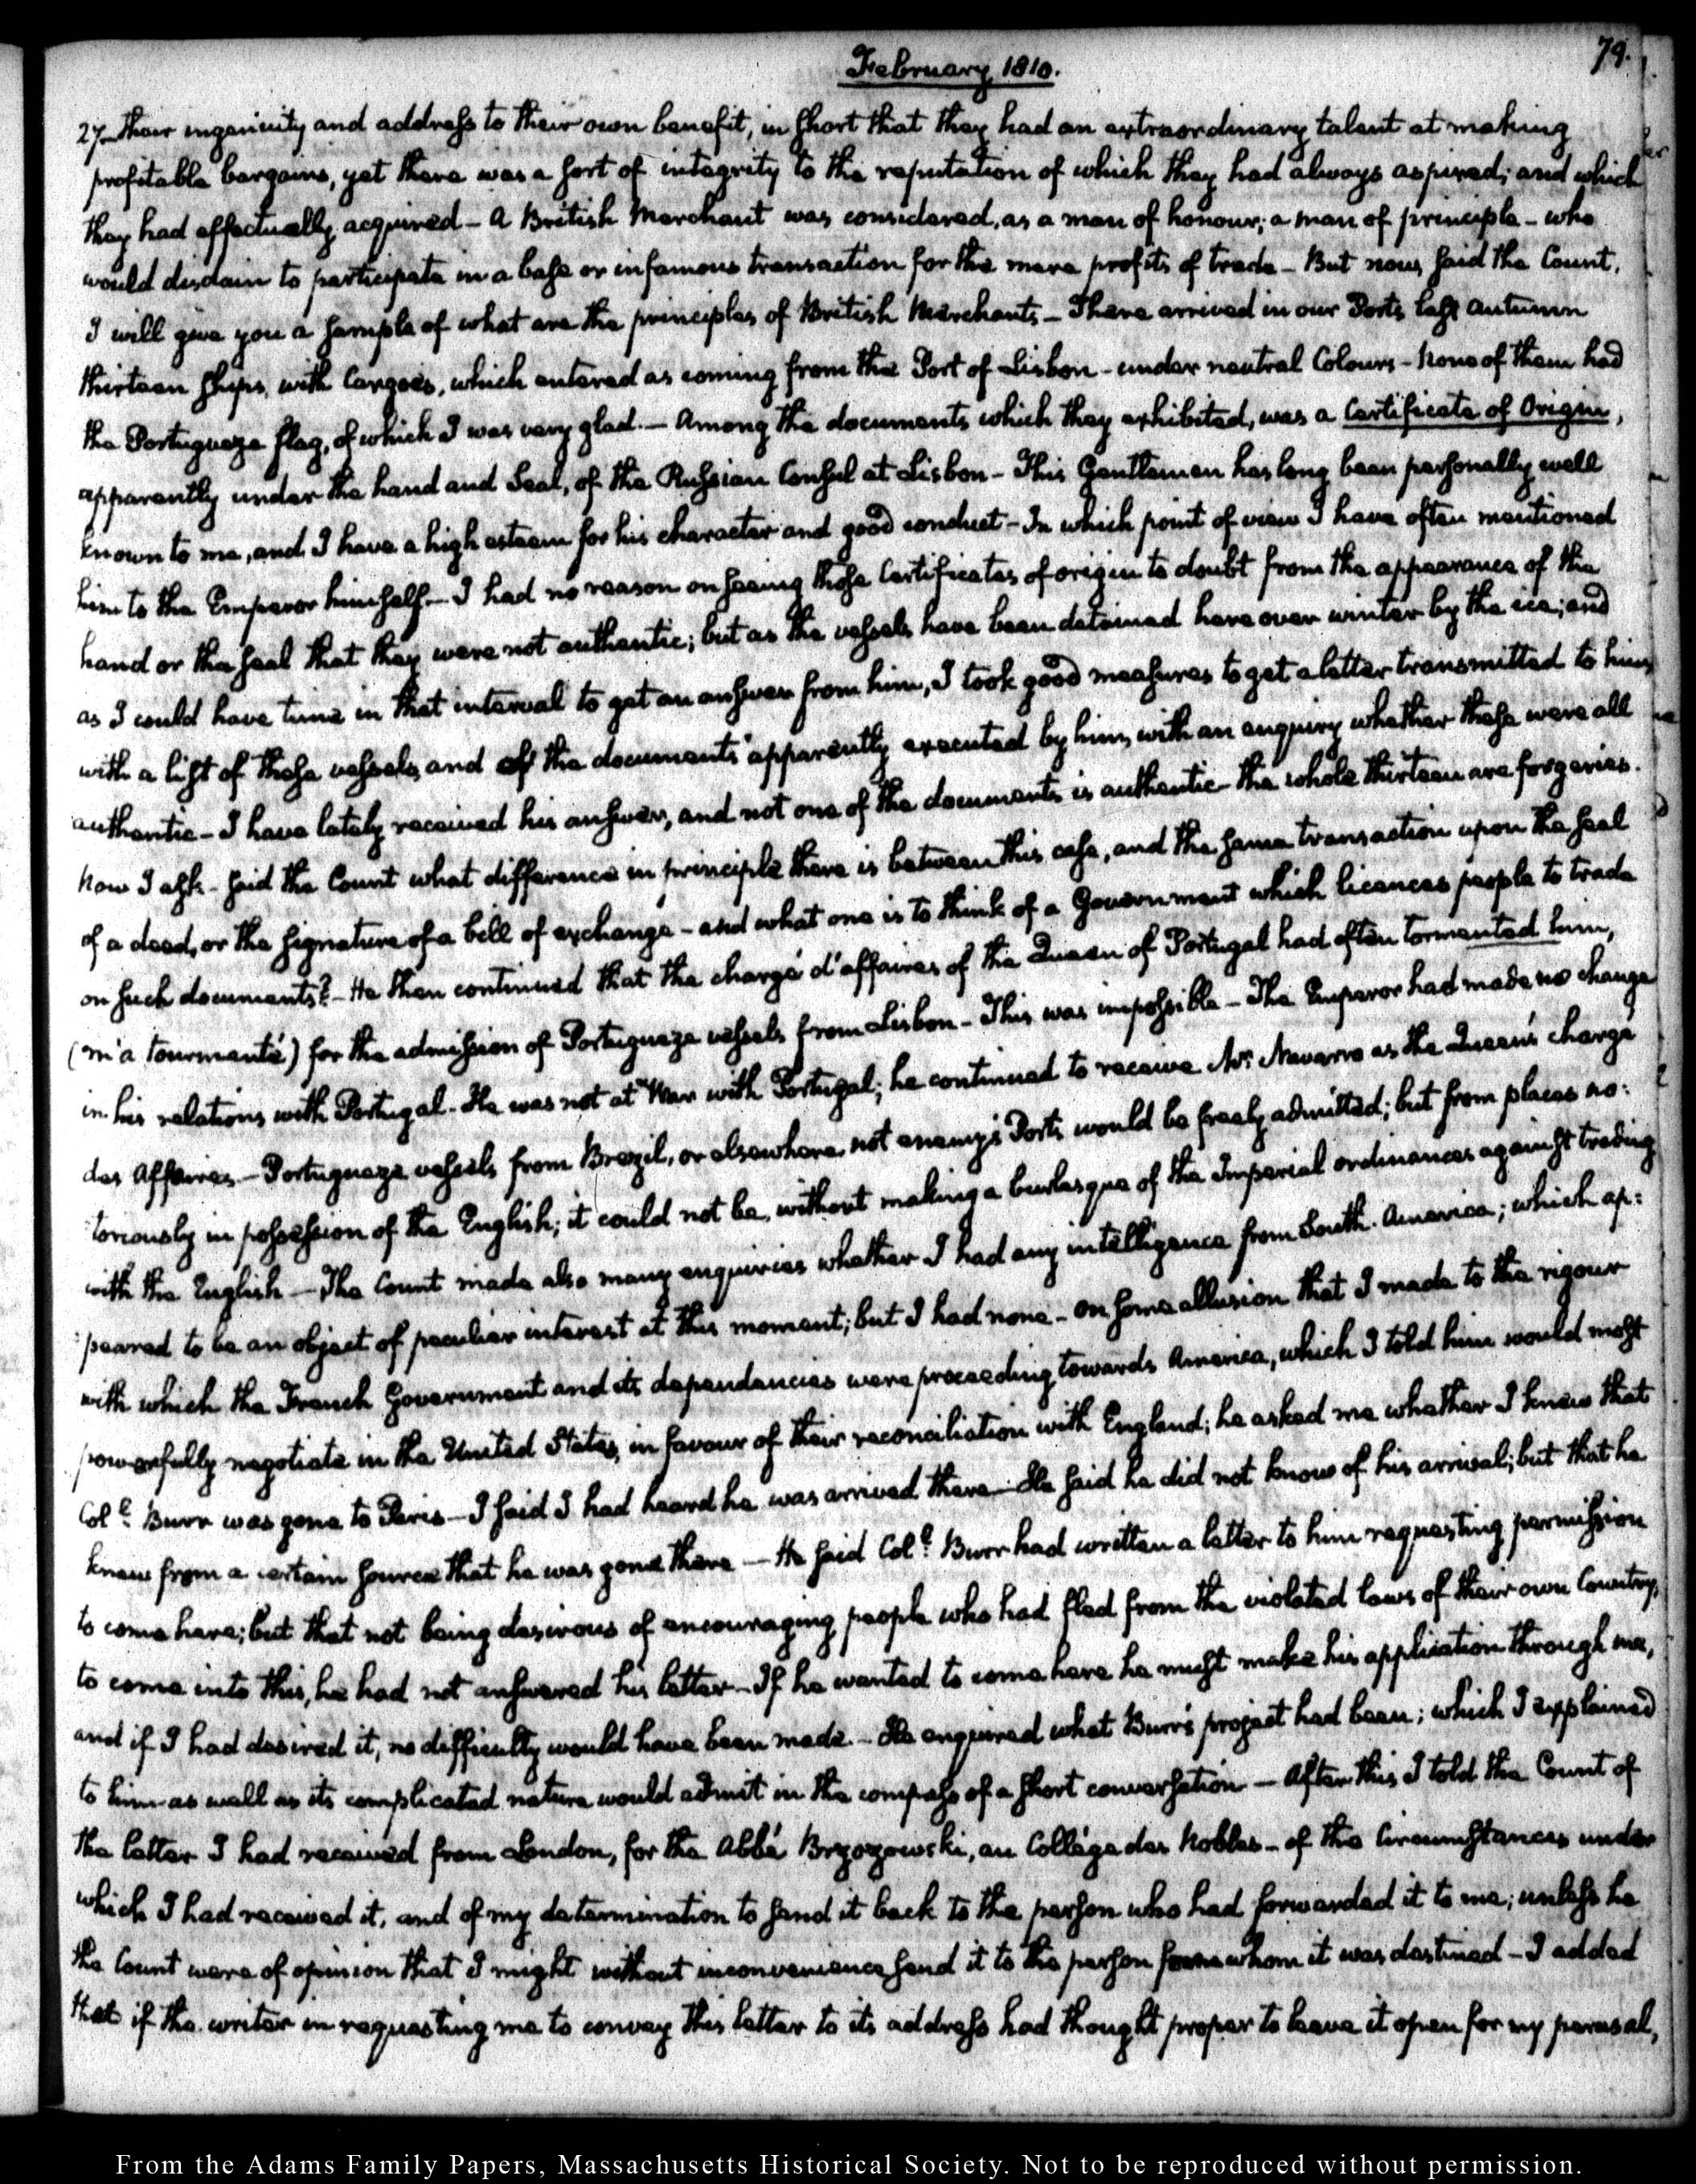 February 1810.
79.
27. their ingenuity and address to their own benefit, in short that they had an extraordinary talent at making
profitable bargains, yet there was a sort of integrity to the reputation of which they had always aspired; and which
they had effectually acquired — A British Merchant was considered, as a man of honour; a man of principle — who
would disdain to participate in a base or infamous transaction for the mere profits of trade — But now, said the Count,
I will give you a sample of what are the principles of British Merchants — There arrived in our Ports last autumn
thirteen ships, with Cargoes, which entered as coming from the Port of Lisbon — under neutral Colours — None of them had
the Portugueze flag, of which I was very glad. — Among the documents which they exhibited, was a Certificate of Origin,
apparently under the hand and Seal, of the Russian Consul at Lisbon — This Gentleman has long been personally well
known to me, and I have a high esteem for his character and good conduct — In which point of view I have often mentioned
him to the Emperor himself — I had no reason on seeing those Certificates of origin to doubt from the appearance of the
hand or the seal that they were not authentic; but as the vessels have been detained here over winter by the ice; and
as I could have time in that interval to get an answer from him, I took good measures to get a letter transmitted to him,
with a list of these vessels, and of the documents apparently executed by him, with an enquiry whether these were all
authentic — I have lately received his answer, and not one of the documents is authentic — the whole thirteen are forgeries.
Now I ask — said the Count what difference in principle there is between this case, and the same transaction upon the seal
of a deed, or the signature of a bill of exchange — and what one is to think of a Government which licences people to trade
on such documents? — He then continued that the chargé d'affaires of the Queen of Portugal had often tormented him,
(m'a tourmenté) for the admission of Portugueze vessels from Lisbon — This was impossible — The Emperor had made no change
in his relations with Portugal. He was not at War with Portugal; he continued to receive Mr. Navarro as the Queen's chargé
des Affaires — Portugueze vessels from Brazil, or elsewhere not enemy's Ports would be freely admitted; but from places no:
:toriously in possession of the English; it could not be, without making a burlesque of the Imperial ordinances against trading
with the English — The Count made also many enquiries whether I had any intelligence from South America; which ap:
:peared to be an object of peculiar interest at this moment; but I had none — on some allusion that I made to the rigour
with which the French Government and its dependancies were proceeding towards America, which I told him would most
powerfully negotiate in the United States, in favour of their reconciliation with England; he asked me whether I knew that
Coll. Burr was gone to Paris — I said I had heard he was arrived there — He said he did not know of his arrival; but that he
knew from a certain source that he was gone there — He said Coll. Burr had written a letter to him requesting permission
to come here; but that not being desirous of encouraging people who had fled from the violated laws of their own Country,
to come into this, he had not answered his letter — If he wanted to come here he must make his application through me,
and if I had desired it, no difficulty would have been made. — He enquired what Burr's project had been; which I explained
to him as well as its complicated nature would admit in the compass of a short conversation — After this I told the Count of
the letter I had received from London, for the Abbé Brzozowski, au Collége des Nobles — of the Circumstances under
which I had received it, and of my determination to send it back to the person who had forwarded it to me; unless he
the Count were of opinion that I might without inconvenience send it to the person for whom it was destined — I added
that if the writer in requesting me to convey this letter to its address had thought proper to leave it open for my perusal,
From the Adams Family Papers, Massachusetts Historical Society. Not to be reproduced without permission.